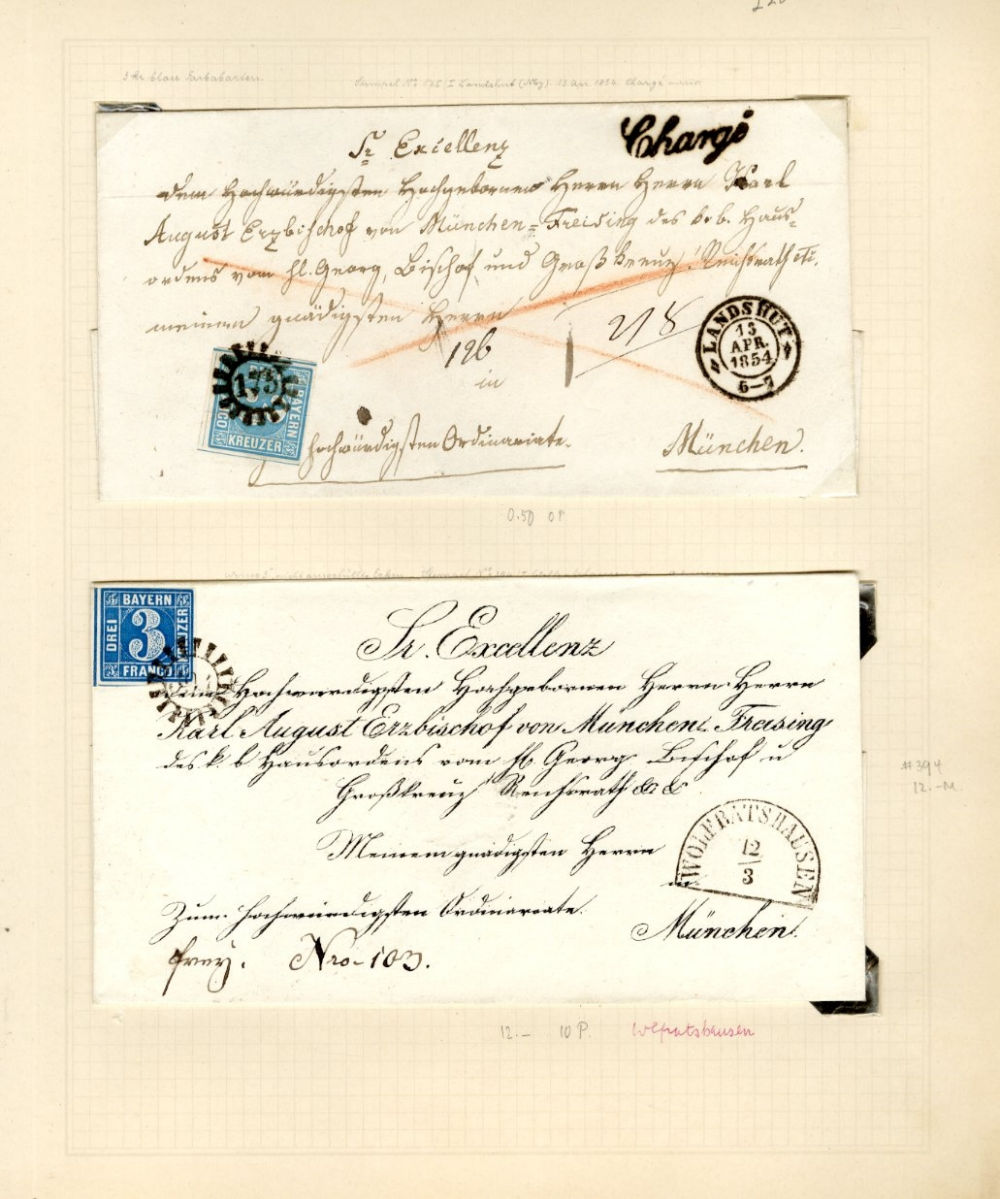 3 Kr blau Farbabarten.
Stempel No 175/I Landshut (Nby). 13 Apr 1854. Chargé
Chargé
Sr Excellenz
dem Hochwürdigsten Hochgebornen Herrn Herrn Karl
August Erzbischof von München-Freising des k. b. Haus-
ordens vom hl. Georg, Bischof und Großkreuz, Reichsrath etc.
meinem gnädigsten Herrn
126
218
in
LANDSHUT
13
APR.
1854
6-7
175
BAYERN
KREUZER
hochwürdigsten Ordinariate.
München.
0.50 OP
BAYERN
DREI
3
FRANCO
Sr. Excellenz
dem Hochwürdigsten Hochgebornen Herrn Herrn
Karl August Erzbischof von München-Freising
des k. b. Hausordens vom hl. Georg Bischof u
Großkreuz Reichsrath &c &
Meinem gnädigsten Herrn
in
WOLFRATSHAUSEN
12
3
Zum hochwürdigsten Ordinariate.
München.
frey. Nro-103.
#394
12.-M
12.- 10 P. Wolfratshausen